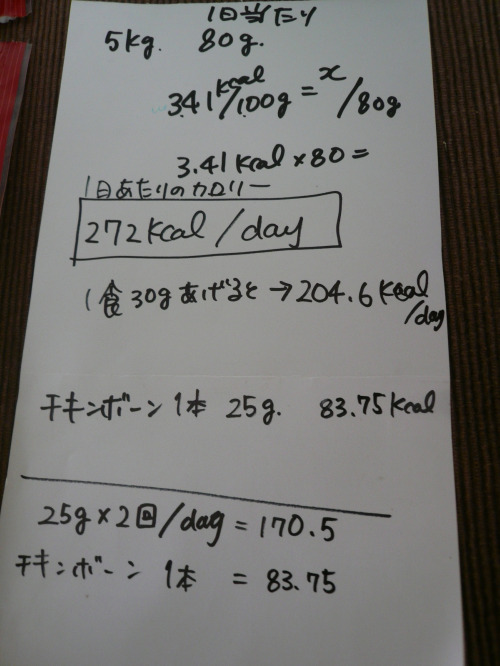 1日当たり
5kg. 80g.
341kcal/100g = x/80g
3.41kcal×80=
1日あたりのカロリー
272kcal/day
1食30gあげると→204.6kcal/day
チキンボーン 1本 25g. 83.75kcal
25g×2回/day=170.5
チキンボーン 1本 = 83.75